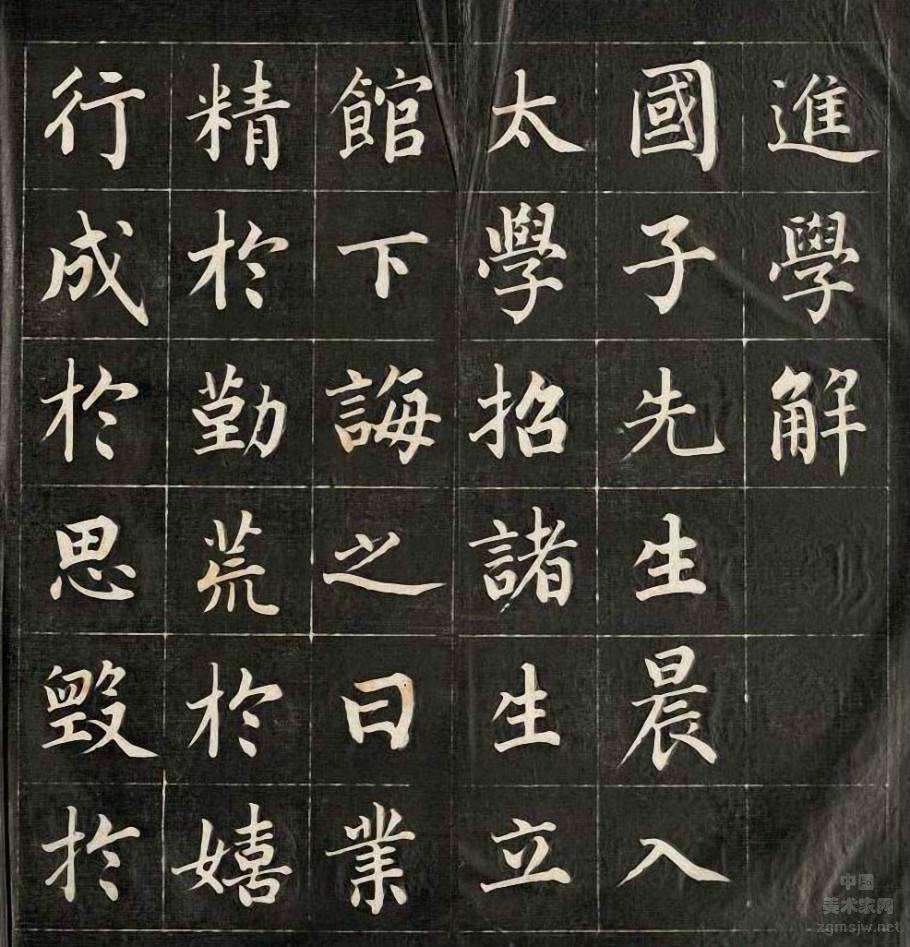 進學解
國子先生晨入
太學招諸生立
館下誨之曰業
精於勤荒於嬉
行成於思毀於
中国
美术家网
zgmsjw.net